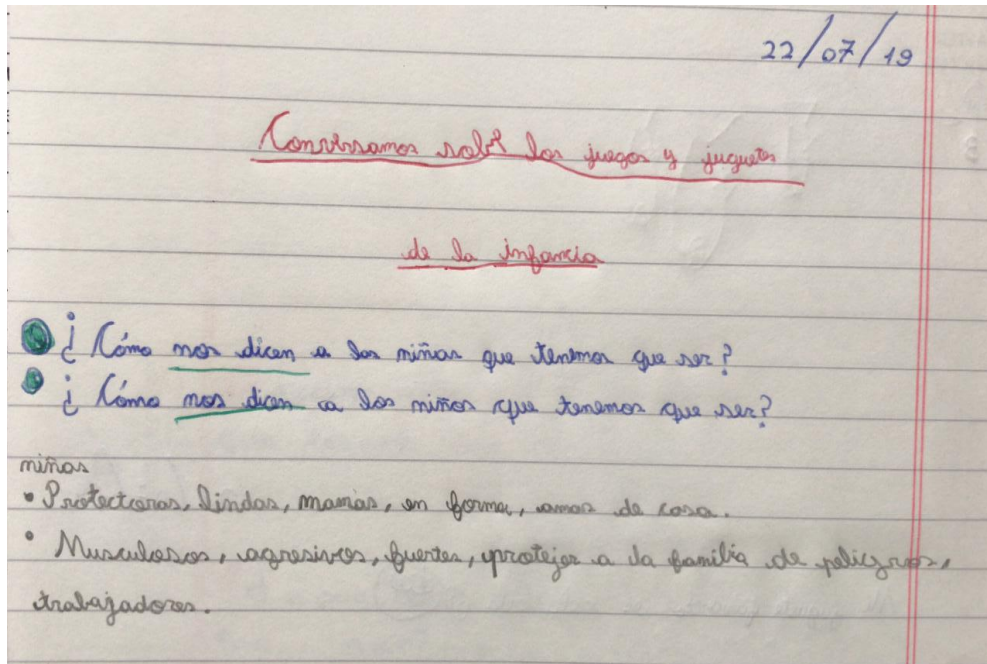 22/07/19
Conversamos sobre los juegos y juguetes
de la infancia
¿Cómo nos dicen a las niñas que tenemos que ser?
¿Cómo nos dicen a los niños que tenemos que ser?
niñas
• Protectoras, lindas, mamás, en forma, amas de casa.
• Musculosos, agresivos, fuertes, protejer a la familia de peligros,
trabajadores.